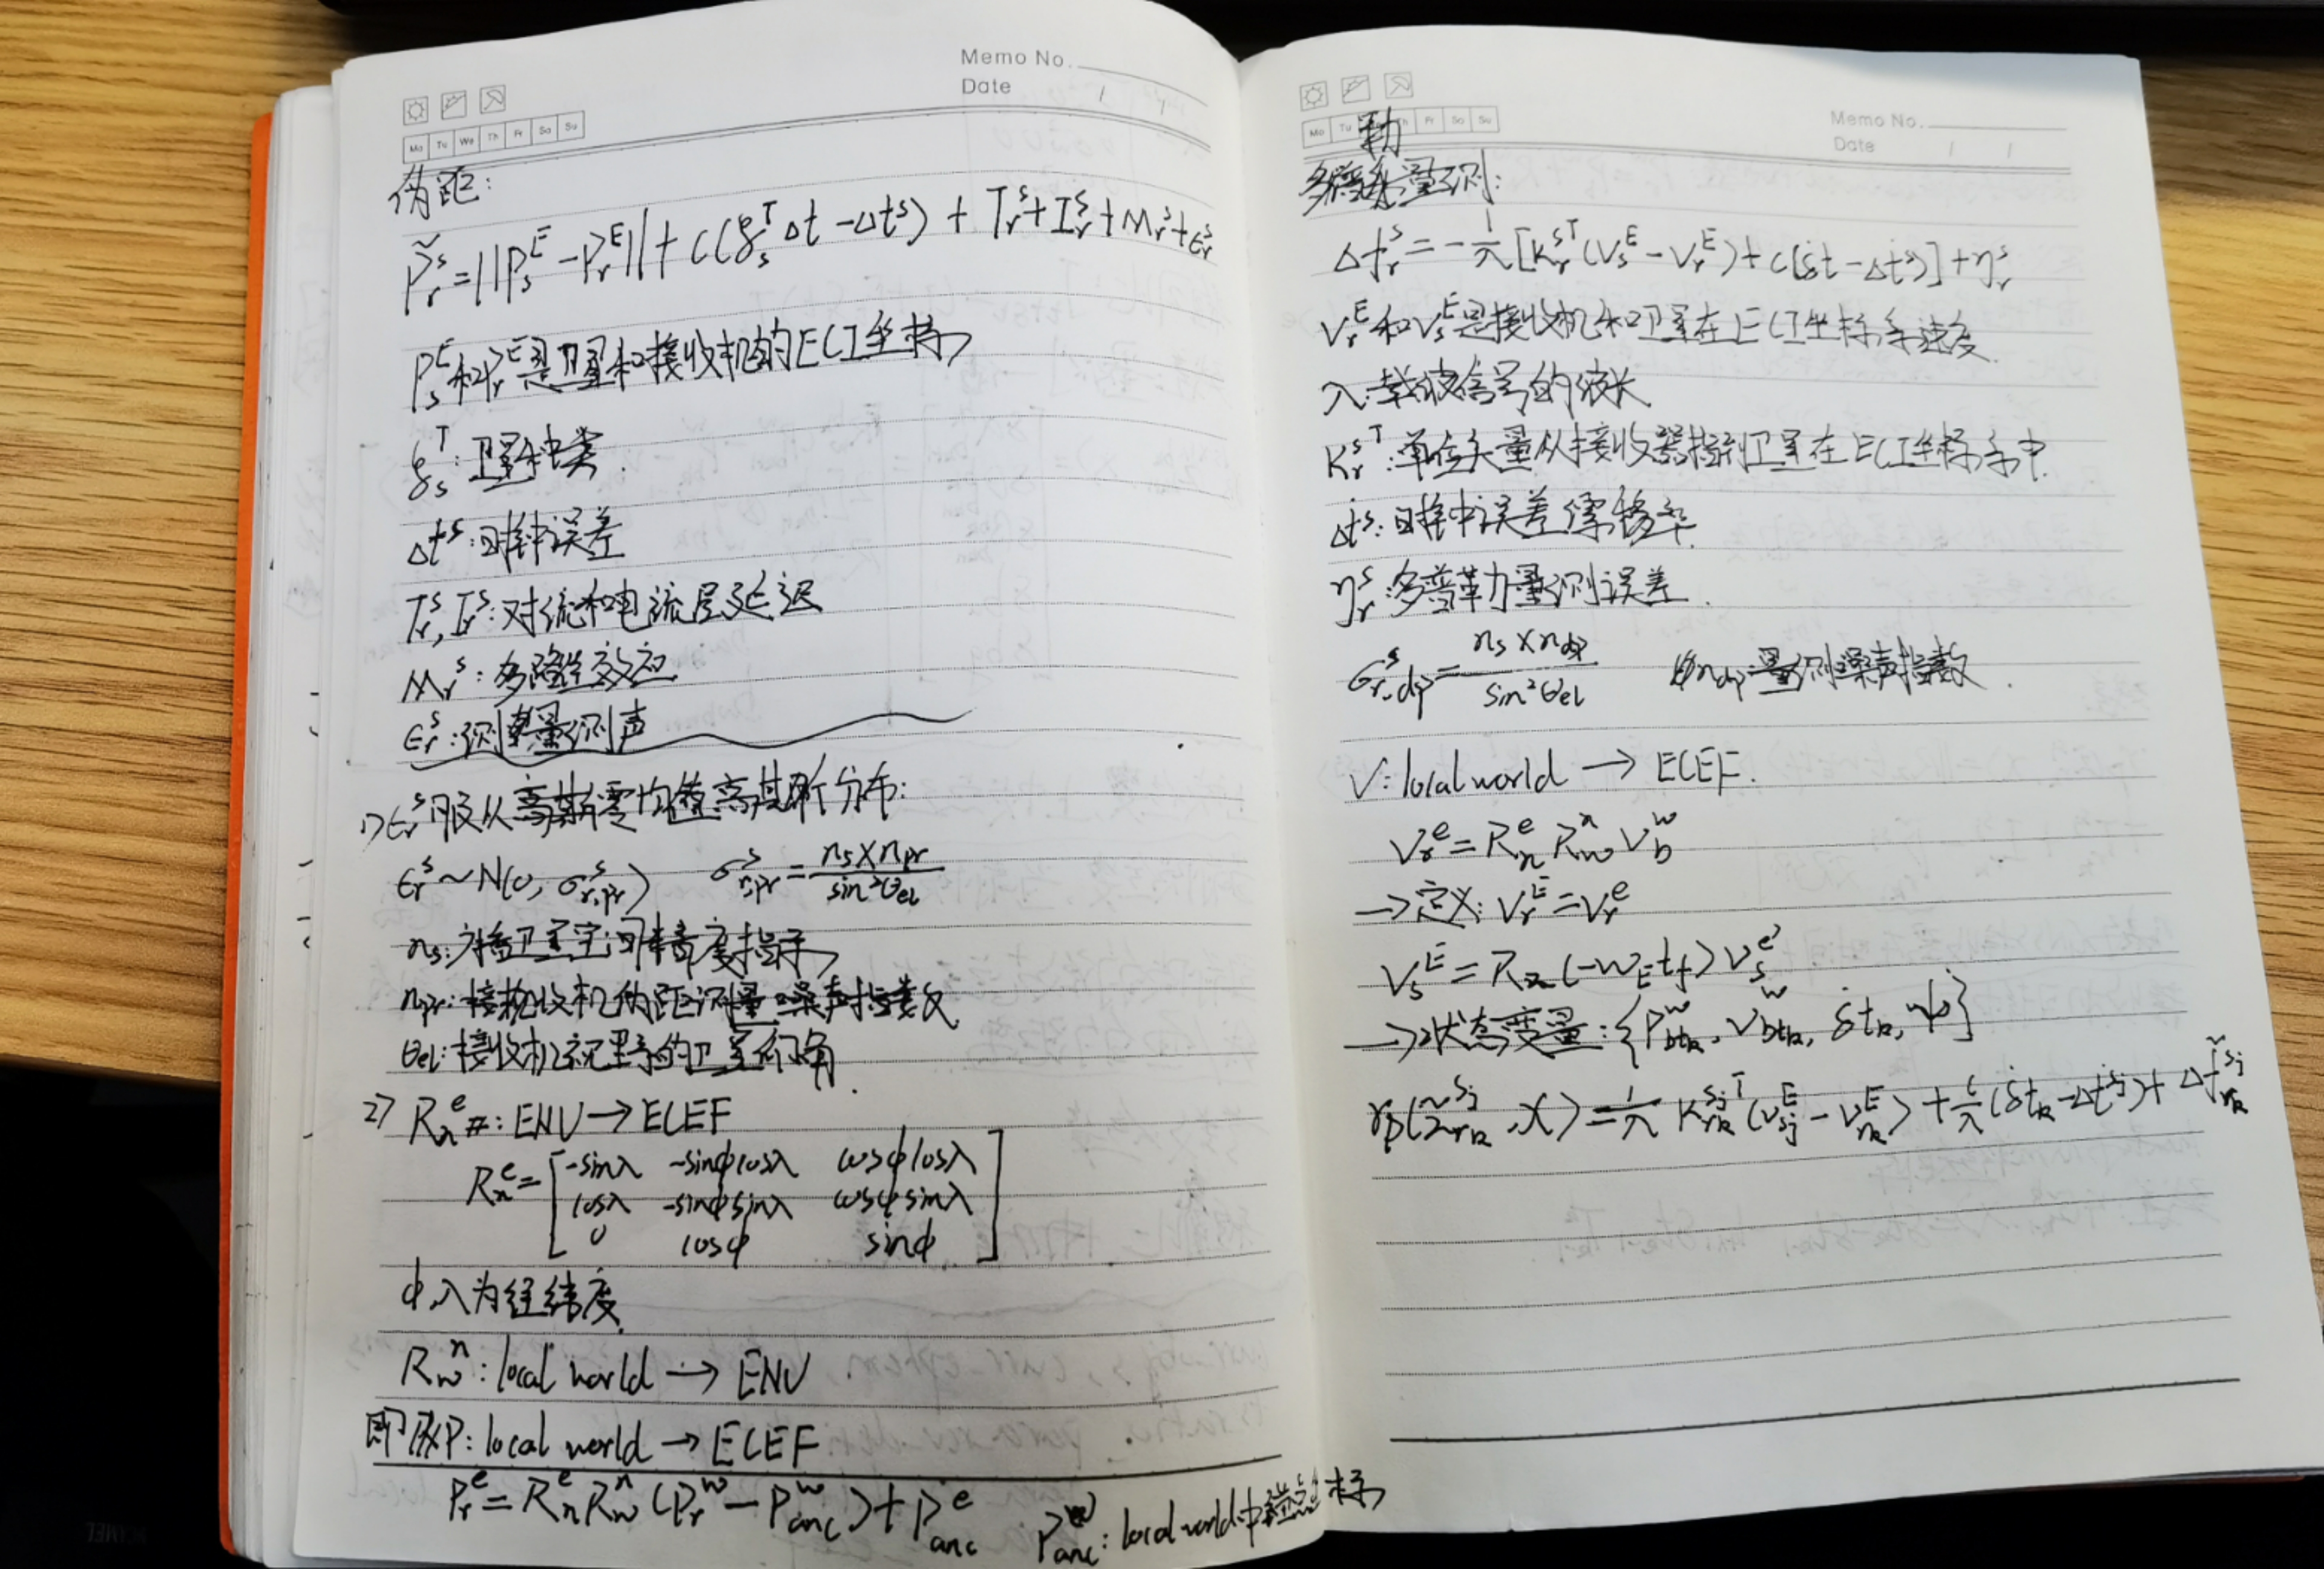 Memo No.
Date
Mo Tu We Th Fr Sa Su
伪距:
P̃ᵣˢ=||Pₛᴱ-Pᵣᴱ||+c(ζₛᵀΔt-Δtˢ)+Tᵣˢ+Iᵣˢ+Mᵣˢ+εᵣˢ
Pₛᴱ和Pᵣᴱ是卫星和接收机的ECI坐标
ζₛᵀ:卫星种类.
Δtˢ:时钟误差
Tᵣˢ,Iᵣˢ:对流和电流层延迟
Mᵣˢ:多路径效应
εᵣˢ:测量
1)εᵣˢ服从零均值高斯分布:
εᵣˢ~N(0, σᵣ,ₚᵣˢ) σᵣ,ₚᵣˢ=(nₛ×nₚᵣ)/(sin²θel)
nₛ:卫星空间精度指示
nₚᵣ:接收机伪距测量噪声指数
θel:接收机视野的卫星仰角.
2) Rₙᵉ:ENU→ECEF
Rₙᵉ=[-sinλ -sinφcosλ cosφcosλ
cosλ -sinφsinλ cosφsinλ
0 cosφ sinφ]
φ,λ为经纬度.
R_wⁿ:local world→ENU
即从P:local world→ECEF
Pᵣᵉ=RₙᵉR_wⁿ(Pᵣʷ-P_ancʷ)+P_ancᵉ P_ancʷ:local world中锚点坐标
Mo Tu Th Fr Sa Su
Memo No.
Date
多普勒量测:
Δfᵣˢ=-1/λ[Kᵣˢᵀ(Vₛᴱ-Vᵣᴱ)+c(δ̇t-Δṫˢ)]+ηᵣˢ
Vᵣᴱ和Vₛᴱ是接收机和卫星在ECI坐标系速度.
λ:载波信号的波长
Kᵣˢᵀ:单位矢量从接收器指到卫星在ECI坐标系中.
Δṫˢ:时钟误差漂移率.
ηᵣˢ:多普勒量测误差.
σᵣ,dpˢ=(nₛ×n_dp)/(sin²θel) n_dp:量测噪声指数.
V:local world→ECEF.
Vᵣᵉ=RₙᵉR_wⁿV_bʷ
→定义:Vᵣᴱ=Vᵣᵉ
Vₛᴱ=R_z(-w_E t_f)Vₛᵉ'
→状态变量:{P_btₖʷ, V_btₖʷ, δ̇tₖ, ψ}
r_p(z̃_rₖˢʲ,χ)=1/λ K_rₖˢʲᵀ(V_sⱼᴱ-V_rₖᴱ)+c/λ(δ̇tₖ-Δṫˢʲ)+Δf̃_rₖˢʲ